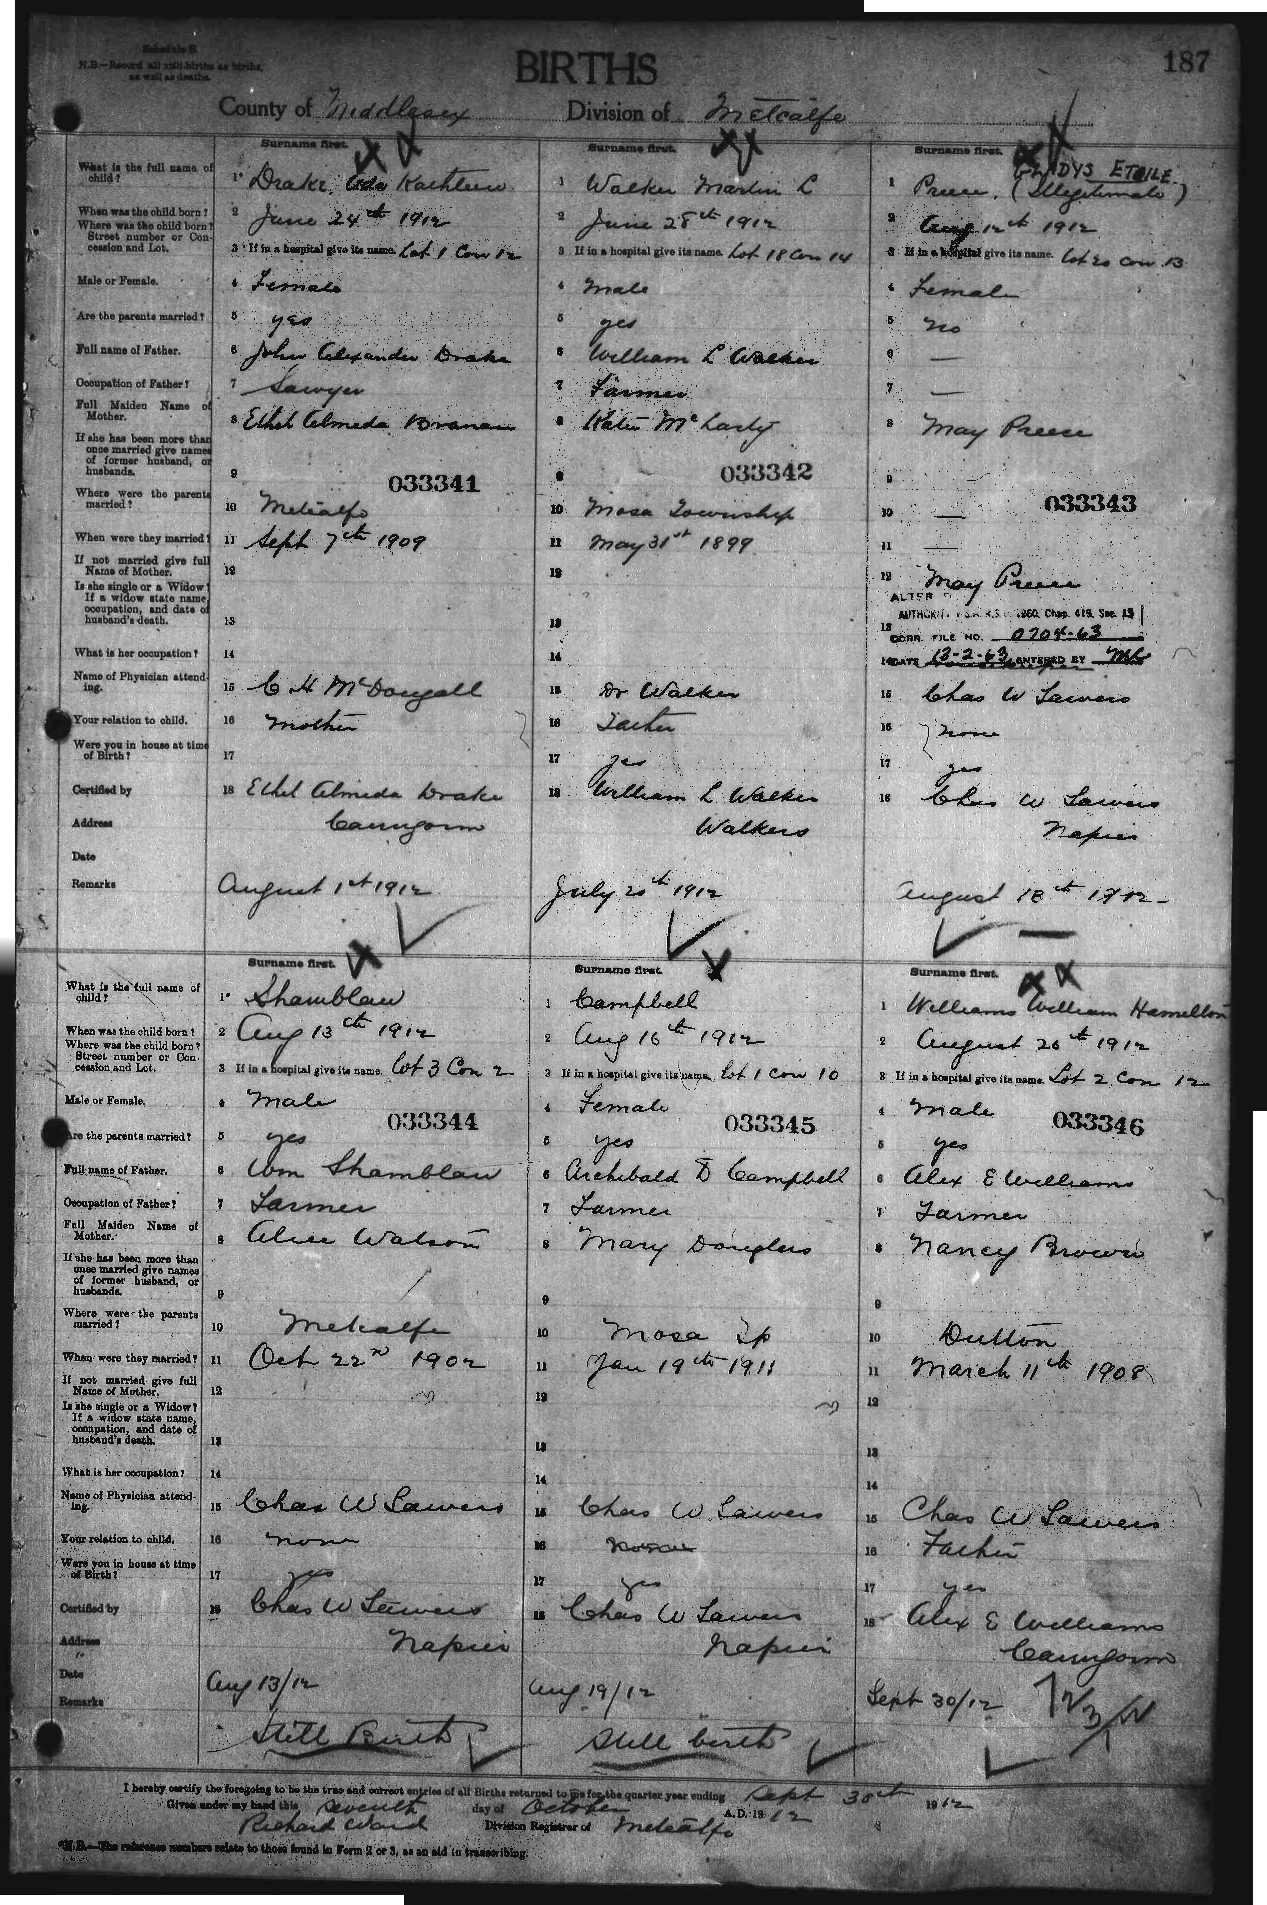 Schedule B
N.B.—Record all still-births as births, as well as deaths.
BIRTHS
187
County of Middlesex Division of Metcalfe
Surname first. Surname first. Surname first.
What is the full name of child?
1 Drake, Ada Kathleen
1 Walker Martin L
GLADYS ETOILE
1 Preece. (Illegitimate)
When was the child born?
2 June 24th 1912
2 June 28th 1912
2 Aug 12th 1912
Where was the child born? Street number or Concession and Lot.
3 If in a hospital give its name. Lot 1 Con 12
3 If in a hospital give its name. Lot 18 Con 14
3 If in a hospital give its name. Lot 20 Con 13
Male or Female.
4 Female
4 Male
4 Female
Are the parents married?
5 yes
5 yes
5 No
Full name of Father.
6 John Alexander Drake
6 William L Walker
6 —
Occupation of Father?
7 Sawyer
7 Farmer
7 —
Full Maiden Name of Mother.
8 Ethel Almeda
8 Katie
8 May Preece
If she has been more than once married give names of former husband, or husbands.
9 033341
9 033342
9 033343
Where were the parents married?
10 Metcalfe
10 Mosa Township
10 —
When were they married?
11 Sept 7th 1909
11 May 31st 1899
11 —
If not married give full Name of Mother.
12
12
12 May Preece
Is she single or a Widow? If a widow state name, occupation, and date of husband's death.
13
13
13
AUTHORITY R.S.O. 1960, Chap. 419, Sec. 13
CORR. FILE NO. 0704-63
DATE 13-2-63 ENTERED BY
What is her occupation?
14
14
14
Name of Physician attending.
15 C H McDougall
15 Dr Walker
15 Chas W Sawers
Your relation to child.
16 Mother
16 Father
16 None
Were you in house at time of Birth?
17
17 yes
17 yes
Certified by
18 Ethel Almeda Drake
18 William L Walker
18 Chas W Sawers
Address
Cairngorm
Walkers
Napier
Date
Remarks
August 1st 1912
July 20th 1912
August 18th 1912
Surname first. Surname first. Surname first.
What is the full name of child?
1 Shamblaw
1 Campbell
1 Williams William Hamilton
When was the child born?
2 Aug 13th 1912
2 Aug 16th 1912
2 August 26th 1912
Where was the child born? Street number or Concession and Lot.
3 If in a hospital give its name. Lot 3 Con 2
3 If in a hospital give its name. Lot 1 Con 10
3 If in a hospital give its name. Lot 2 Con 12
Male or Female.
4 Male
4 Female
4 Male
033344
033345
033346
Are the parents married?
5 yes
5 yes
5 yes
Full name of Father.
6 Wm Shamblaw
6 Archibald D Campbell
6 Alex E Williams
Occupation of Father?
7 Farmer
7 Farmer
7 Farmer
Full Maiden Name of Mother.
8 Alice Watson
8 Mary Douglas
8 Nancy Brown
If she has been more than once married give names of former husband, or husbands.
9
9
9
Where were the parents married?
10 Metcalfe
10 Mosa Tp
10 Dutton
When were they married?
11 Oct 22nd 1902
11 Jan 19th 1911
11 March 11th 1908
If not married give full Name of Mother.
12
12
12
Is she single or a Widow? If a widow state name, occupation, and date of husband's death.
13
13
13
What is her occupation?
14
14
14
Name of Physician attending.
15 Chas W Sawers
15 Chas W Sawers
15 Chas W Sawers
Your relation to child.
16 none
16 none
16 Father
Were you in house at time of Birth?
17 yes
17 yes
17 yes
Certified by
18 Chas W Sawers
18 Chas W Sawers
18 Alex E Williams
Address
Napier
Napier
Cairngorm
Date
Aug 13/12
Aug 19/12
Sept 30/12
Remarks
Still Birth
Still birth
I hereby certify the foregoing to be the true and correct entries of all Births returned to me for the quarter year ending Sept 30th 1912
Given under my hand this seventh day of October A.D. 1912
Richard Ward Division Registrar of Metcalfe
*N.B.—The reference numbers relate to those found in Form 2 or 3, as an aid in transcribing.